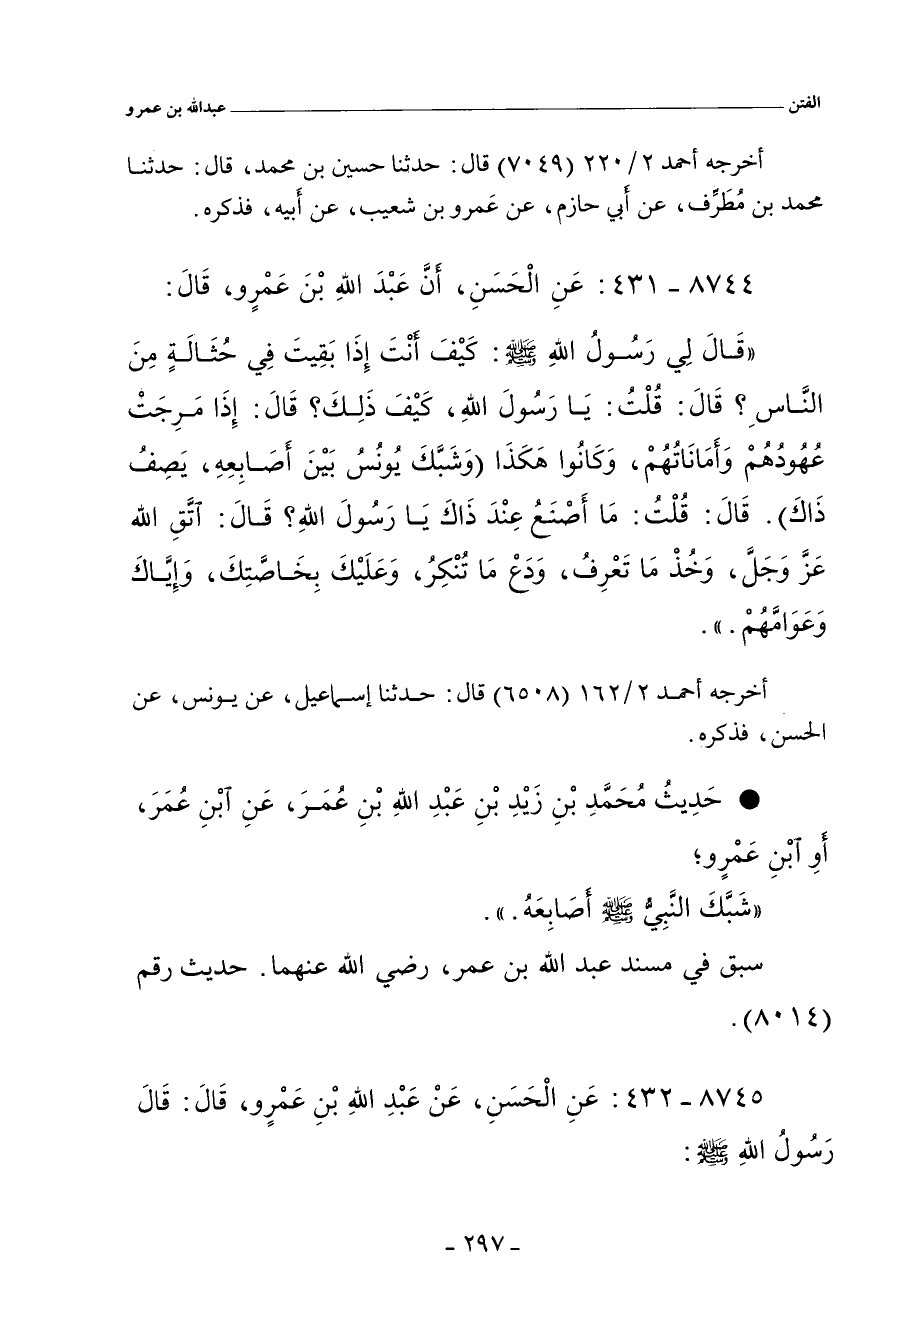 الفتن ــــــــــــــــــــ عبدالله بن عمرو
أخرجه أحمد ٢/ ٢٢٠ (٧٠٤٩) قال: حدثنا حسين بن محمد، قال: حدثنا
محمد بن مُطَرِّف، عن أَبي حازم، عن عَمرو بن شعيب، عن أَبيه، فذكره.
٨٧٤٤ ـ ٤٣١ : عَنِ الْحَسَنِ، أَنَّ عَبْدَ اللهِ بْنَ عَمْرٍو، قَالَ:
«قَالَ لِي رَسُولُ اللهِ ﷺ: كَيْفَ أَنْتَ إِذَا بَقِيتَ فِي حُثَالَةٍ مِنَ
النَّاسِ؟ قَالَ: قُلْتُ: يَا رَسُولَ اللهِ، كَيْفَ ذَلِكَ؟ قَالَ: إِذَا مَرِجَتْ
عُهُودُهُمْ وَأَمَانَاتُهُمْ، وَكَانُوا هَكَذَا (وَشَبَّكَ يُونُسُ بَيْنَ أَصَابِعِهِ، يَصِفُ
ذَاكَ). قَالَ: قُلْتُ: مَا أَصْنَعُ عِنْدَ ذَاكَ يَا رَسُولَ اللهِ؟ قَالَ: ٱتَّقِ الله
عَزَّ وَجَلَّ، وَخُذْ مَا تَعْرِفُ، وَدَعْ مَا تُنْكِرُ، وَعَلَيْكَ بِخَاصَّتِكَ، وَإِيَّاكَ
وَعَوَامَّهُمْ.».
أخرجه أحمد ٢/ ١٦٢ (٦٥٠٨) قال: حدثنا إسماعيل، عن يونس، عن
الحسن، فذكره.
● حَدِيثُ مُحَمَّدِ بْنِ زَيْدِ بْنِ عَبْدِ اللهِ بْنِ عُمَرَ، عَنِ ٱبْنِ عُمَرَ،
أَوِ ٱبْنِ عَمْرٍو؛
«شَبَّكَ النَّبِيُّ ﷺ أَصَابِعَهُ.».
سبق في مسند عبد الله بن عمر، رضي الله عنهما. حديث رقم
(٨٠١٤).
٨٧٤٥ ـ ٤٣٢ : عَنِ الْحَسَنِ، عَنْ عَبْدِ اللهِ بْنِ عَمْرٍو، قَالَ: قَالَ
رَسُولُ اللهِ ﷺ:
ـ ٢٩٧ ـ